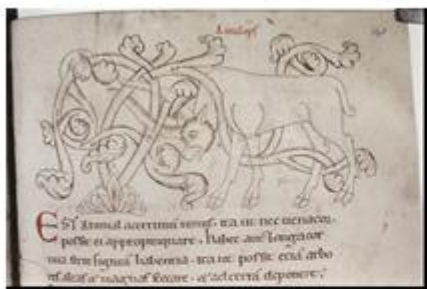 EST Animal acerrimū nimis. ita ut nec uenator
possit ei appropinquare. habet aut longa cor
nua serre figurā habentia. ita ut possit etiā arbo
res altas & magnas secare. & ad terrā deponere.